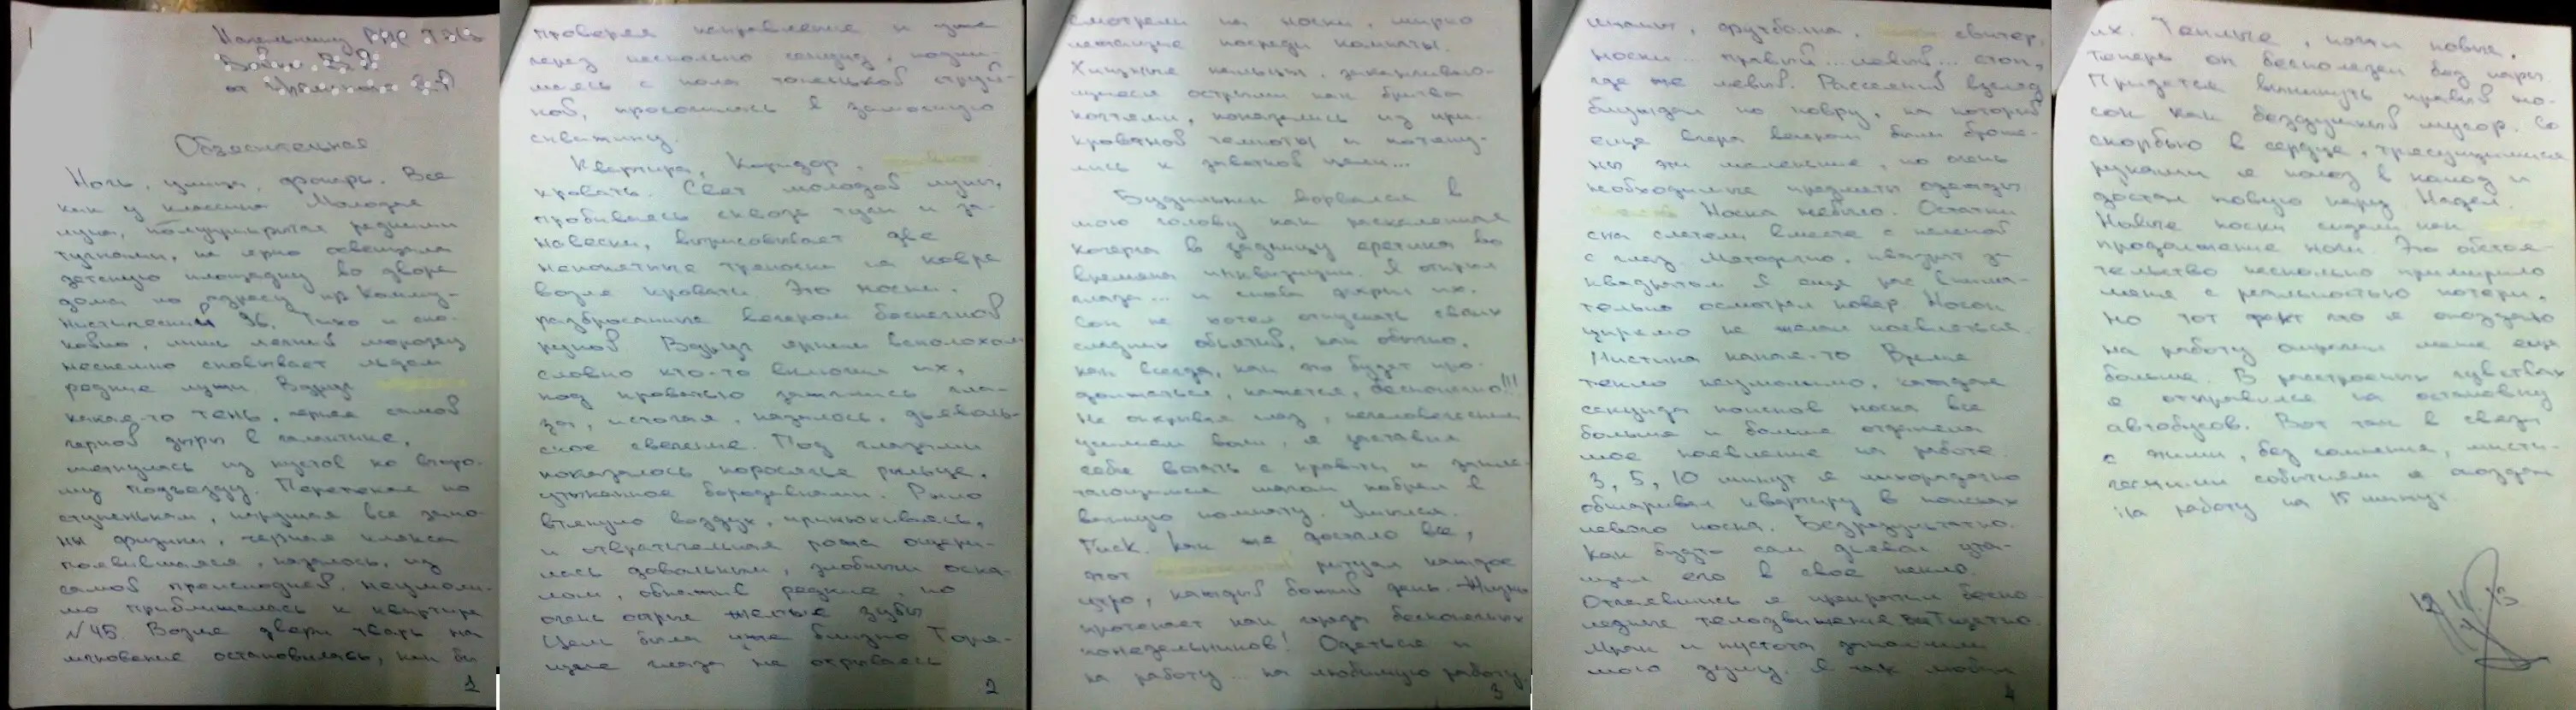 Начальнику РПС
от
Объяснительная
Ночь, улица, фонарь. Все
как у классика. Молодая
луна, полуприкрытая редкими
тучками, не ярко освещала
детскую площадку во дворе
дома по адресу пр Комму-
нистический 36. Тихо и спо-
койно, лишь легкий морозец
неспешно сковывает льдом
редкие лужи. Вдруг
какая-то тень, чернее самой
черной дыры в галактике,
метнулась из кустов ко второ-
му подъезду. Перетекая по
ступенькам, нарушая все зако-
ны физики, черная клякса
появившаяся, казалось, из
самой преисподней, неумоли-
мо приближалась к квартире
№45. Возле двери тварь на
мгновение остановилась, как бы
1
проверяя направление и уже
через несколько секунд, подни-
маясь с пола тонюськой струй-
кой, просочилась в замочную
скважину.
Квартира, Коридор,
кровать. Свет молодой луны,
пробиваясь сквозь тучи и за-
навески, вырисовывает две
непонятные тряпочки на ковре
возле кровати. Это носки,
разбросанные вечером беспечной
рукой. Вдруг ярким всполохом
словно кто-то включил их,
под кроватью зажглись гла-
за, источая, казалось, дьяволь-
ское свечение. Под глазами
показалось поросячье рыльце,
утыканное бородавками. Рыло
втянуло воздух, принюхиваясь,
и отвратительная рожа ощери-
лась довольным, злобным оска-
лом, обнажив редкие, но
очень острые желтые зубы
Цель была уже близко Горя-
щие глаза не отрываясь
2
смотрели на носки, мирно
лежащие посреди комнаты.
Хищные пальцы, заканчиваю-
щиеся острыми как бритва
когтями, показались из при-
кроватной темноты и потяну-
лись к заветной цели...
Будильник ворвался в
мою голову как раскаленная
кочерга в задницу еретика во
времена инквизиции. Я открыл
глаза... и снова закрыл их.
Сон не хотел отпускать своих
сладких объятий, как обычно,
как всегда, как это будет про-
должаться, кажется, бесконечно!!!
Не открывая глаз, нечеловеческим
усилием воли, я заставил
себя встать с кровати и запле-
тающимся шагом побрел в
ванную комнату. Умылся.
Как же достало все,
этот ритуал каждое
утро, каждый божий день. Жизнь
протекает как череда бесконечных
понедельников! Одеться и
на работу... на любимую работу.
3
штаны, футболка, свитер,
носки... правый... левый... стоп,
где же левый. Рассеяный взгляд
блуждал по ковру, на который
еще вчера вечером были броше-
ны эти маленькие, но очень
необходимые предметы одежды.
Носка небыло. Остатки
сна слетели вместе с пеленой
с глаз. Методично, квадрат за
квадратом Я еще раз внима-
тельно осмотрел ковер. Носок
упрямо не желал появляться.
Мистика какая-то Время
текло неумолимо, каждая
секунда поисков носка все
больше и больше отдаляла
мое появление на работе.
3, 5, 10 минут я лихорадочно
обшаривал квартиру в поисках
левого носка. Безрезультатно.
Как будто сам дьявол ута-
щил его в свое пекло.
Отчаявшись я прекратил беспо-
лезные телодвижения. Тщетно.
Мрак и пустота заполнили
мою душу. Я так любил
4
их. Теплые, почти новые,
теперь он бесполезен без пары.
Придется выкинуть правый но-
сок как бездушный мусор. Со
скорбью в сердце, трясущимися
руками я полез в комод и
достал новую пару. Надел.
Новые носки сидели как
продолжение ноги. Это обстоя-
тельство несколько примирило
меня с реальностью потери,
но тот факт что я опоздаю
на работу огорчил меня еще
больше. В расстроеных чувствах
я отправился на остановку
автобусов. Вот так в связи
с этими, без сомнения, мисти-
ческими событиями я опоздал
на работу на 15 минут.
12.11.13